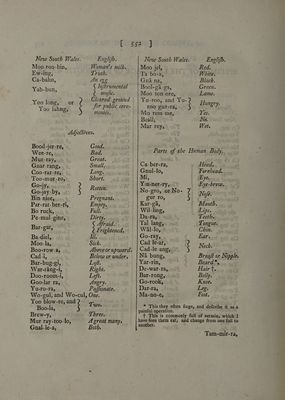 [ 552 ]
New South Wales. English.
Moo roo-bin, Woman's milk.
Ew-ing, Truth.
Ca-bahn, An egg
Yab-bun, Instrumental music.
Yoo long, or
Yoo lahng, Cleared ground for public ceremonies.
Adjectives.
Bood-jer-re, Good.
Wee-re, Bad.
Mur-ray, Great.
Gnar rang, Small.
Coo-rar-re, Long.
Too-mur-ro, Short.
Go-jy,
Go-jay-by, Rotten.
Bin nice, Pregnant.
Par-rat-ber-ri, Empty.
Bo ruck, Full.
Pe-mul gine, Dirty.
Bar-gat, Afraid. Frightened.
Ba-diel, Ill.
Moo la, Sick.
Boo-row a, Above or upward.
Cad i, Below or under.
Bar-bug-gi, Lost.
War-rang-i, Right.
Doo-room-i, Left.
Goo-lar ra, Angry.
Yu-ro-ra, Passionate.
Wo-gul, and Wo-cul, One.
Yoo blow-re, and
Boo-la, Two.
Brew-y, Three.
Mur ray-too-lo, A great many,
Gnal-le-a, Both.
New South Wales. English.
Moo jel, Red.
Ta bo-a, White.
Gnā na, Black.
Bool-gā ga, Green.
Moo ton ore, Lame.
Yu-roo, and Yu-
roo gur-ra, Hungry.
Mo rem-me, Yes.
Beall, No.
Mur rey, Wet.
Parts of the Human Body.
Ca-ber-ra, Head.
Gnul-lo, Forehead.
Mi, Eye.
Yin-ner-ry, Eye-brow.
No-gro, or No-
gur ro, Nose.
Kar-gā, Mouth.
Wil-ling, Lips.
Da-ra, Teeth.
Tal lang, Tongue.
Wāl-lo, Chin.
Go-ray, Ear.
Cad le-ar,
Cad-le ang, Neck.
Nā bung, Breast or Nipple.
Yar-rin, Beard *.
De-war-ra, Hair †.
Bar-rong, Belly.
Go-rook, Knee.
Dar-ra, Leg.
Ma-no-e, Foot.
* This they often singe, and describe it as a
painful operation.
† This is commonly full of vermin, which I
have seen them eat, and change from one full to
another.
Tam-mir-ra,